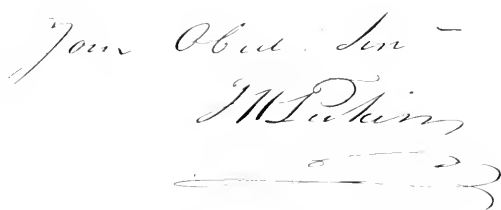 Your Obed. Serv
T H Perkins